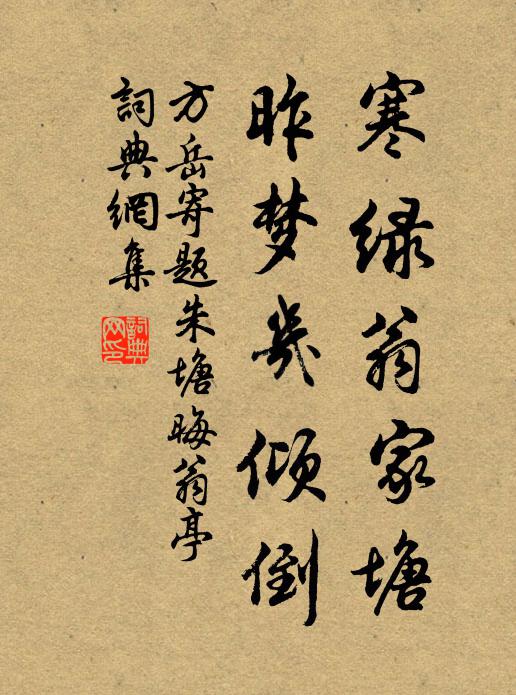 寒绿翁家塘
昨梦几倾倒
方岳寄题朱塘晦翁亭
詞典網集
詞典网印